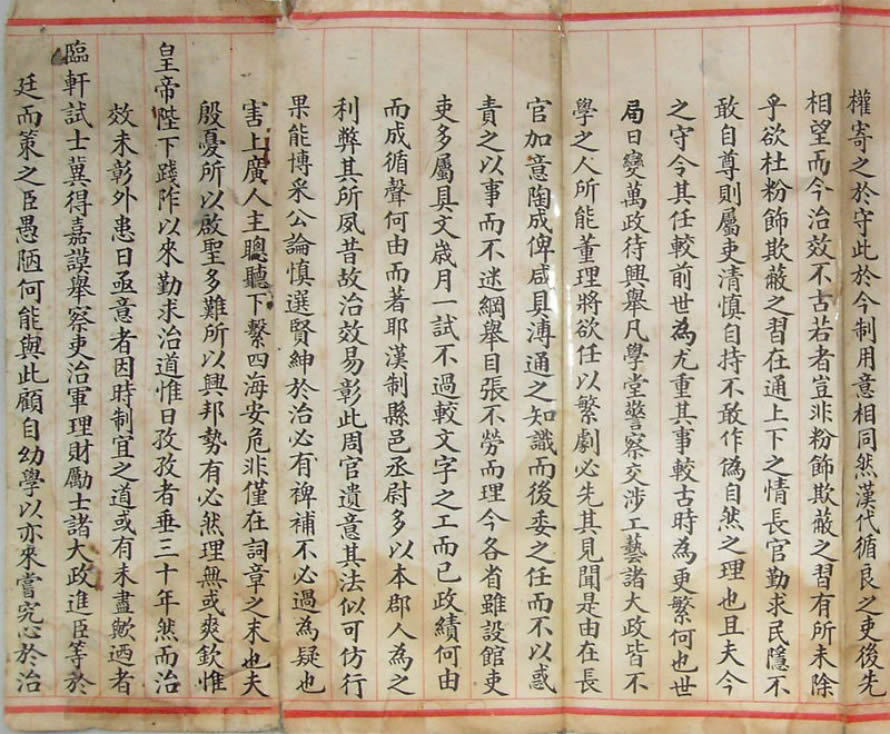 權寄之於守此於今制用意相同然漢代循良之吏後先
相望而今治效不古若者豈非粉飾欺蔽之習有所未除
乎欲杜粉飾欺蔽之習在通上下之情長官勤求民隱不
敢自尊則屬吏清慎自持不敢作僞自然之理也且夫今
之守令其任較前世為尤重其事較古時為更繁何也世
局日變萬政待興舉凡學堂警察交涉工藝諸大政皆不
學之人所能董理將欲任以繁劇必先其見聞是由在長
官加意陶成俾咸具溥通之知識而後委之任而不以惑
責之以事而不迷綱舉目張不勞而理今各省雖設館吏
吏多屬具文歲月一試不過較文字之工而已政績何由
而成循聲何由而著耶漢制縣邑丞尉多以本郡人為之
利弊其所夙昔故治效易彰此周官遺意其法似可仿行
果能博采公論慎選賢紳於治必有裨補不必過為疑也
害上廣人主聰聽下繫四海安危非僅在詞章之末也夫
殷憂所以啟聖多難所以興邦勢有必然理無或爽欽惟
皇帝陛下踐阼以來勤求治道惟日孜孜者垂三十年然而治
效未彰外患日亟意者因時制宜之道或有未盡歟迺者
臨軒試士冀得嘉謨舉察吏治軍理財勵士諸大政進臣等於
廷而策之臣愚陋何能與此顧自幼學以亦來嘗究心於治